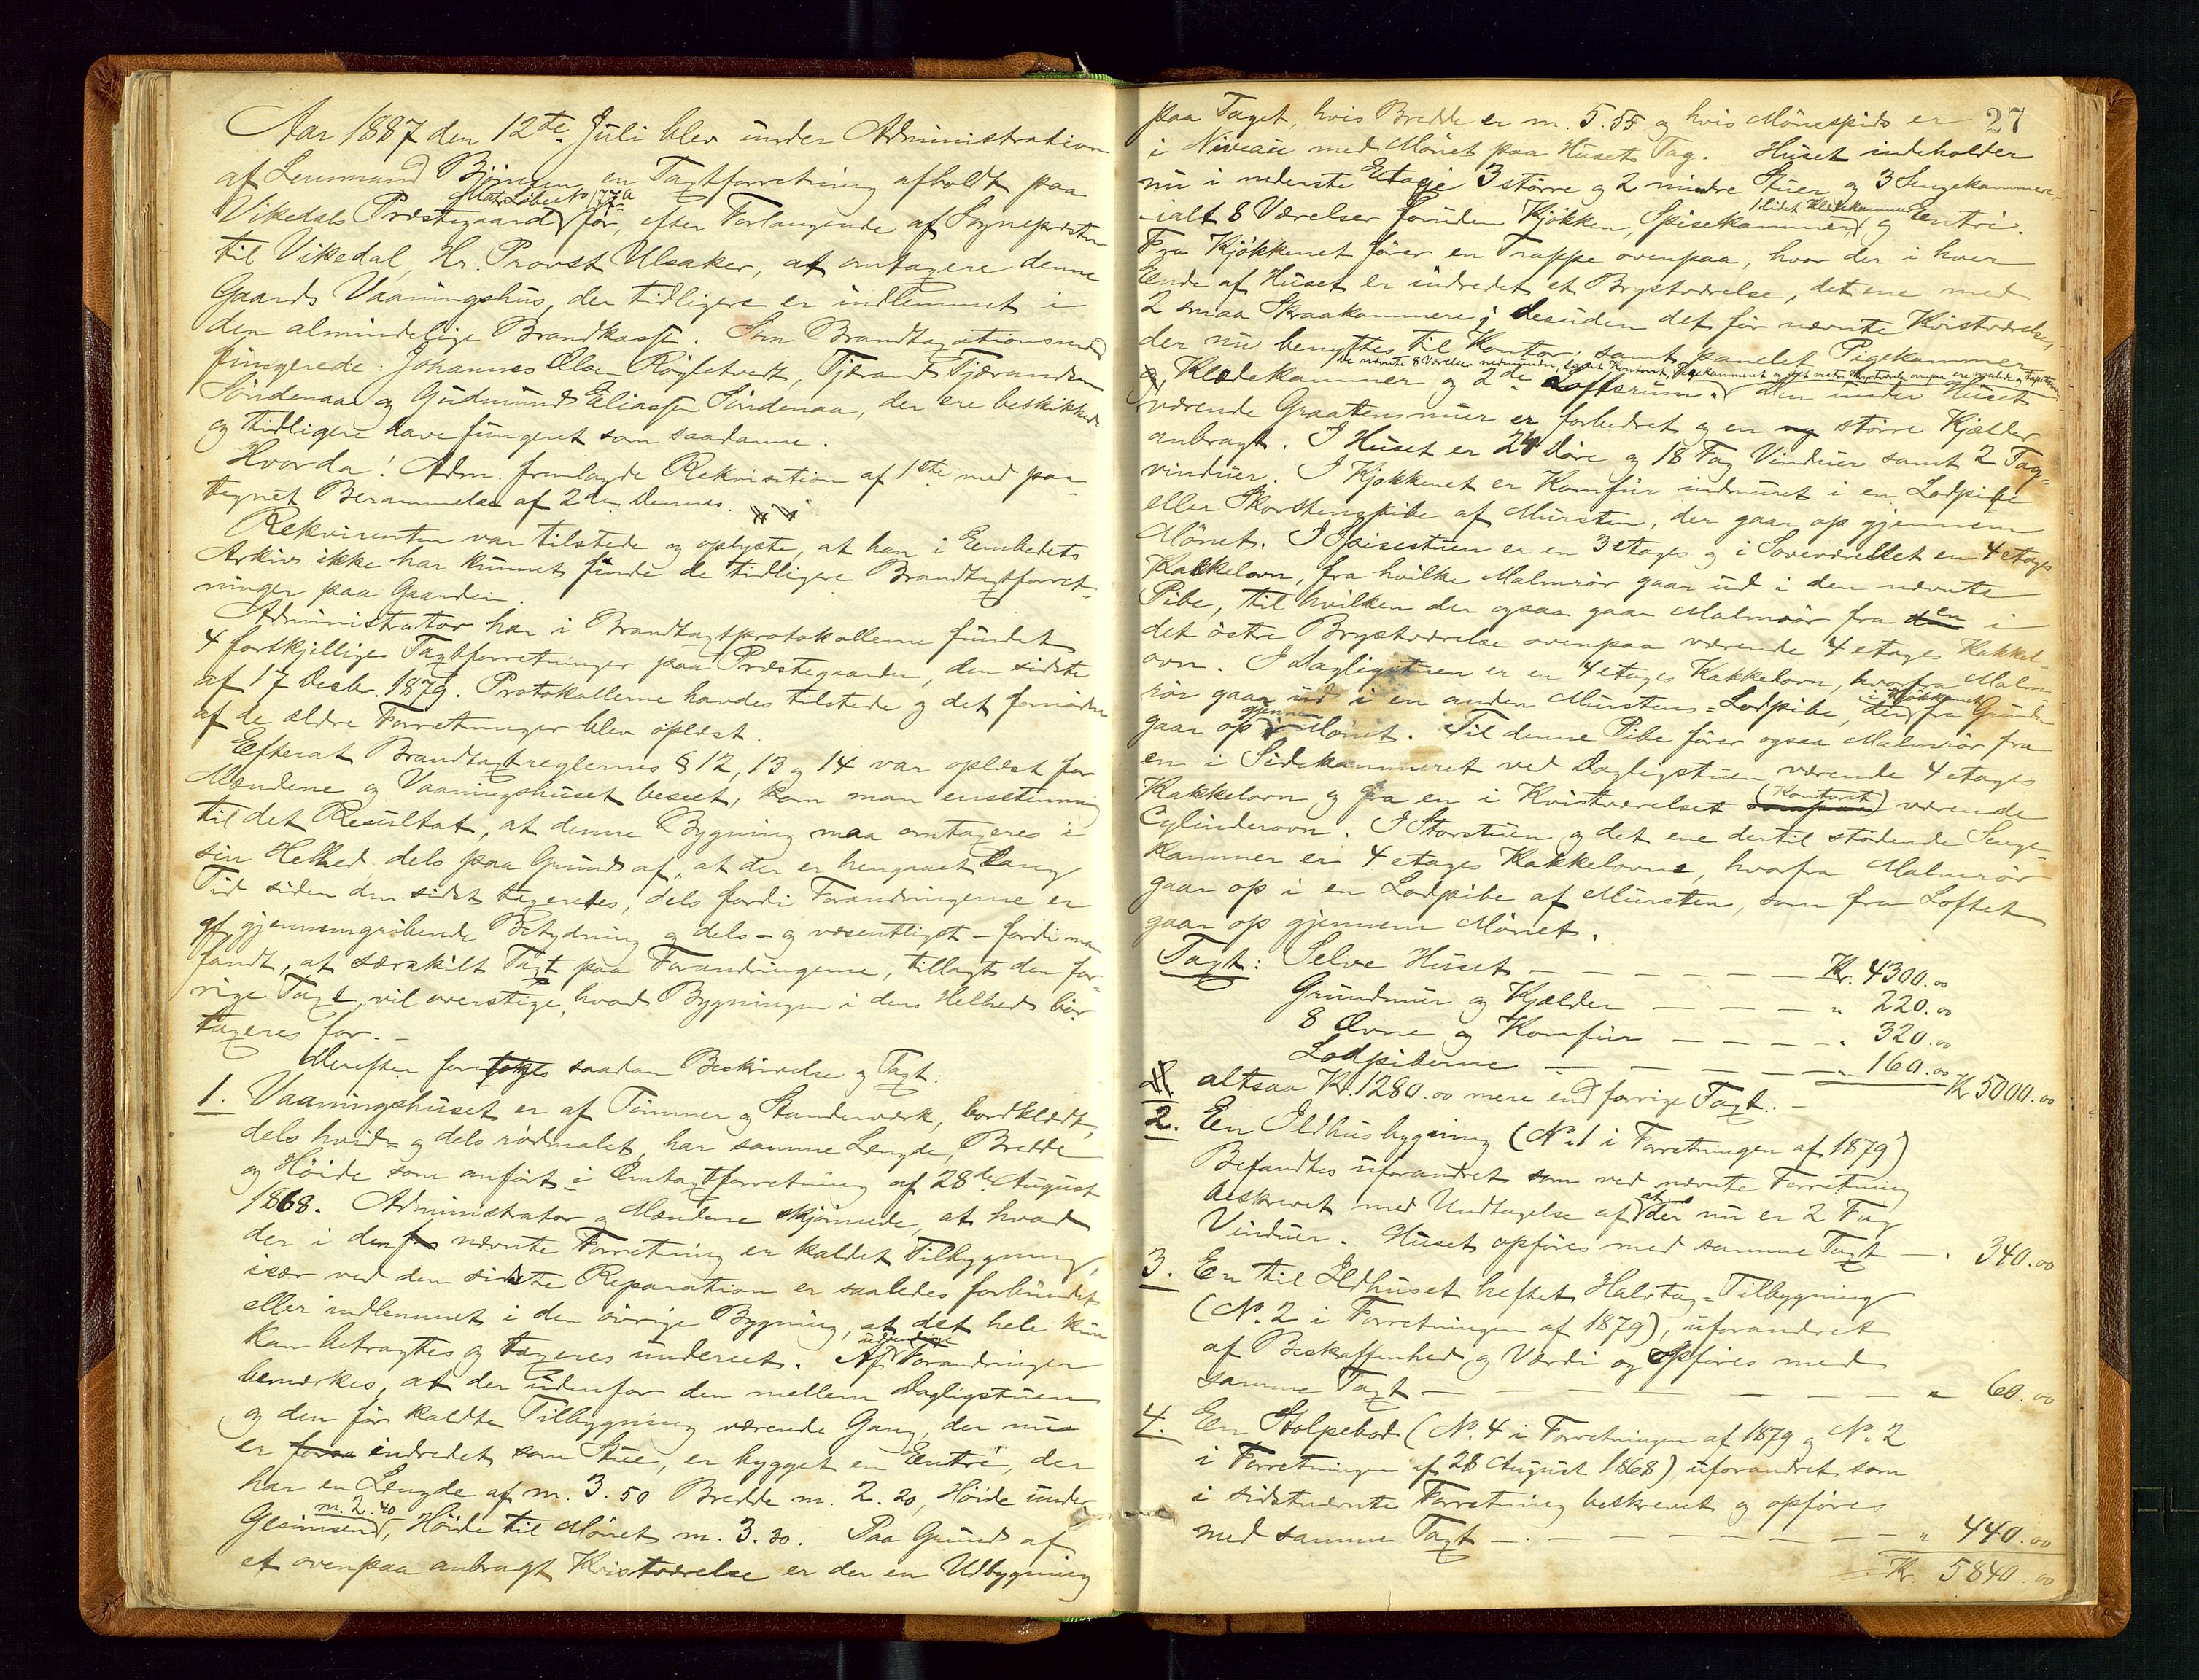 Aar 1887 den 12te Juli blev under Administration
af Lensmand Björnsen en Taxtforretning afholdt paa
Vikedals Præstegaard för, efter Forlangende af Sognepræsten
til Vikedal, Hr. Provst Ulsaker, at omtaxere denne
Gaards Vaaningshus, der tidligere er indlemmet i
den almindelige Brandkasse. Som Brandtaxationsmænd
fungerede: Johannes Olsen Röglstvedt, Tjerand Tjærandsen
Söndenaa og Gudmund Eliassen Söndenaa, der ere beskikkede
og tidligere have fungeret som saadanne.
Hvorda! Adm. fremlagde Rekvisition af 1ste med paa-
tegnet Berammelse af 2den Dennes.
Rekvirenten var tilstede og oplyste, at han i Eembedets
Arkiv ikke har kunnet finde de tidligere Brandtaxtforret-
ninger paa Gaarden.
Administrator har i Brandtaxtprotokollerne fundet
4 forskjellige Taxtforretninger paa Præstegaarden, den sidste
af 17 Decbr. 1879. Protokollerne havdes tilstede og det fornödne
af de ældre Forretninger blev oplæst.
Efterat Brandtaxtreglernes § 12, 13 og 14 var oplæst for
Mændene og Vaaningshuset beseet, kom man enstemmig
til det Resultat, at denne Bygning maa omtaxeres i
sin Helhed, dels paa Grund af, at der er hengaaet lang
Tid siden den sidst taxeredes, dels fordi Forandringerne er
af gjennemgribende Betydning og dels - og væsentligst - fordi man
fandt, at særskilt Taxt paa Forandringerne, tillagt den for-
rige Taxt, vil overstige, hvad Bygningen i dens Helhed bör
taxeres for. -
Derefter foretoges saadan Beskrivelse og Taxt:
1. Vaaningshuset er af Tömmer og Standerværk, bordklædt,
dels hvid- og dels rödmalet, har samme Længde, Bredde
og Höide som anfört i Omtaxtforretning af 28de August
1868. Administrator og Mændene skjönnede, at hvad
der i den nævnte Forretning er kaldet Tilbygning,
især ved den sidste Reparation er saaledes forbundet
eller indlemmet i den övrige Bygning, at det hele kun
kan betragtes og taxeres undereet. Af udvendige Forandringer
bemærkes, at der udenfor den mellem Dagligstuen
og den för kaldte Tilbygning værende Gang, der nu
er indredet som Stue, er bygget en Eentré, der
har en Længde af m. 3.50 Bredde m. 2.20, Höide under
Gesimsen m. 2.40, Höide til Mönet m. 3.30. Paa Grund af
et ovenpaa anbragt Kvistværelse er der en Udbygning
27
paa Taget, hvis Bredde er m. 5.55 og hvis Mönespids er
i Niveau med Mönet paa Husets Tag. Huset indeholder
nu i nederste Etage 3 större og 2 mindre Stuer og 3 Sengekammere
- ialt 8 Værelser foruden Kjökken, Spisekammer, 1 lidet Klædekammer og Eentri.
Fra Kjökkenet förer en Trappe ovenpaa, hvor der i hver
Ende af Huset er indredet et Brystværelse, det ene med
2 smaa Skraakammere; desuden det för nævnte Kvistværelse,
der nu benyttes til Kontor, samt panelet Pigekammer
Klædekammer og 2de Loftsrum. Den under Huset
værende Graastensmur er forbedret og en större Kjælder
anbragt. I Huset er 24 Döre og 18 Fag Vinduer samt 2 Tag-
vinduer. I Kjökkenet er Komfur indmuret i en Lodpibe
eller Skorstenspibe af Mursten, der gaar op gjennem
Mönet. I Spisestuen er en 3 etages og i Soveværelset en 4 etages
Kakkelovn, fra hvilke Malmrör gaar ud i den nævnte
Pibe, til hvilken der ogsaa gaar Malmrör fra en i
det östre Brystværelse ovenpaa værende 4 etages Kakkel-
ovn. I Dagligstuen er en 4 etages Kakkelovn, hvorfra Malm-
rör gaar ud i en anden Murstens-Lodpibe, der i Kjökkenet fra Grunden
gaar op gjennem Mönet. Til denne Pibe förer ogsaa Malmrör fra
en i Sidekammeret ved Dagligstuen værende 4 etages
Kakkelovn og fra en i Kvistværelset (Kontoret) værende
Cylinderovn. I Storstuen og det ene dertil stödende Senge-
kammer er 4 etages Kakkelovne, hvorfra Malmrör
gaar op i en Lodpibe af Mursten, som fra Loftet
gaar op gjennem Mönet.
Taxt: Selve Huset — — — — — Kr. 4300.00
Grundmur og Kjælder — — — " 220.00
8 Ovne og Komfur — — — — " 320.00
Lodpiberne — — — — — " 160.00 Kr 5000.00
altsaa Kr. 1280.00 mere end forrige Taxt. -
2. Een Ildhusbygning (No. 1 i Forretningen af 1879)
Befandtes uforandret som ved nævnte Forretning
beskrevet med Undtagelse af at der nu er 2 Fag
Vinduer. Huset opföres med samme Taxt — " 340.00
3. En til Ildhuset heftet Halvtag-Tilbygning
(No. 2 i Forretningen af 1879), uforandret
af Beskaffenhed og Værdi og opföres med
samme Taxt — — — — — — " 60.00
4. Een Stolpebod (No. 4 i Forretningen af 1879 og No. 2
i Forretningen af 28 August 1868) uforandret som
i sidstnævnte Forretning beskrevet og opföres
med samme Taxt — — — — — — " 440.00
Kr. 5840.00